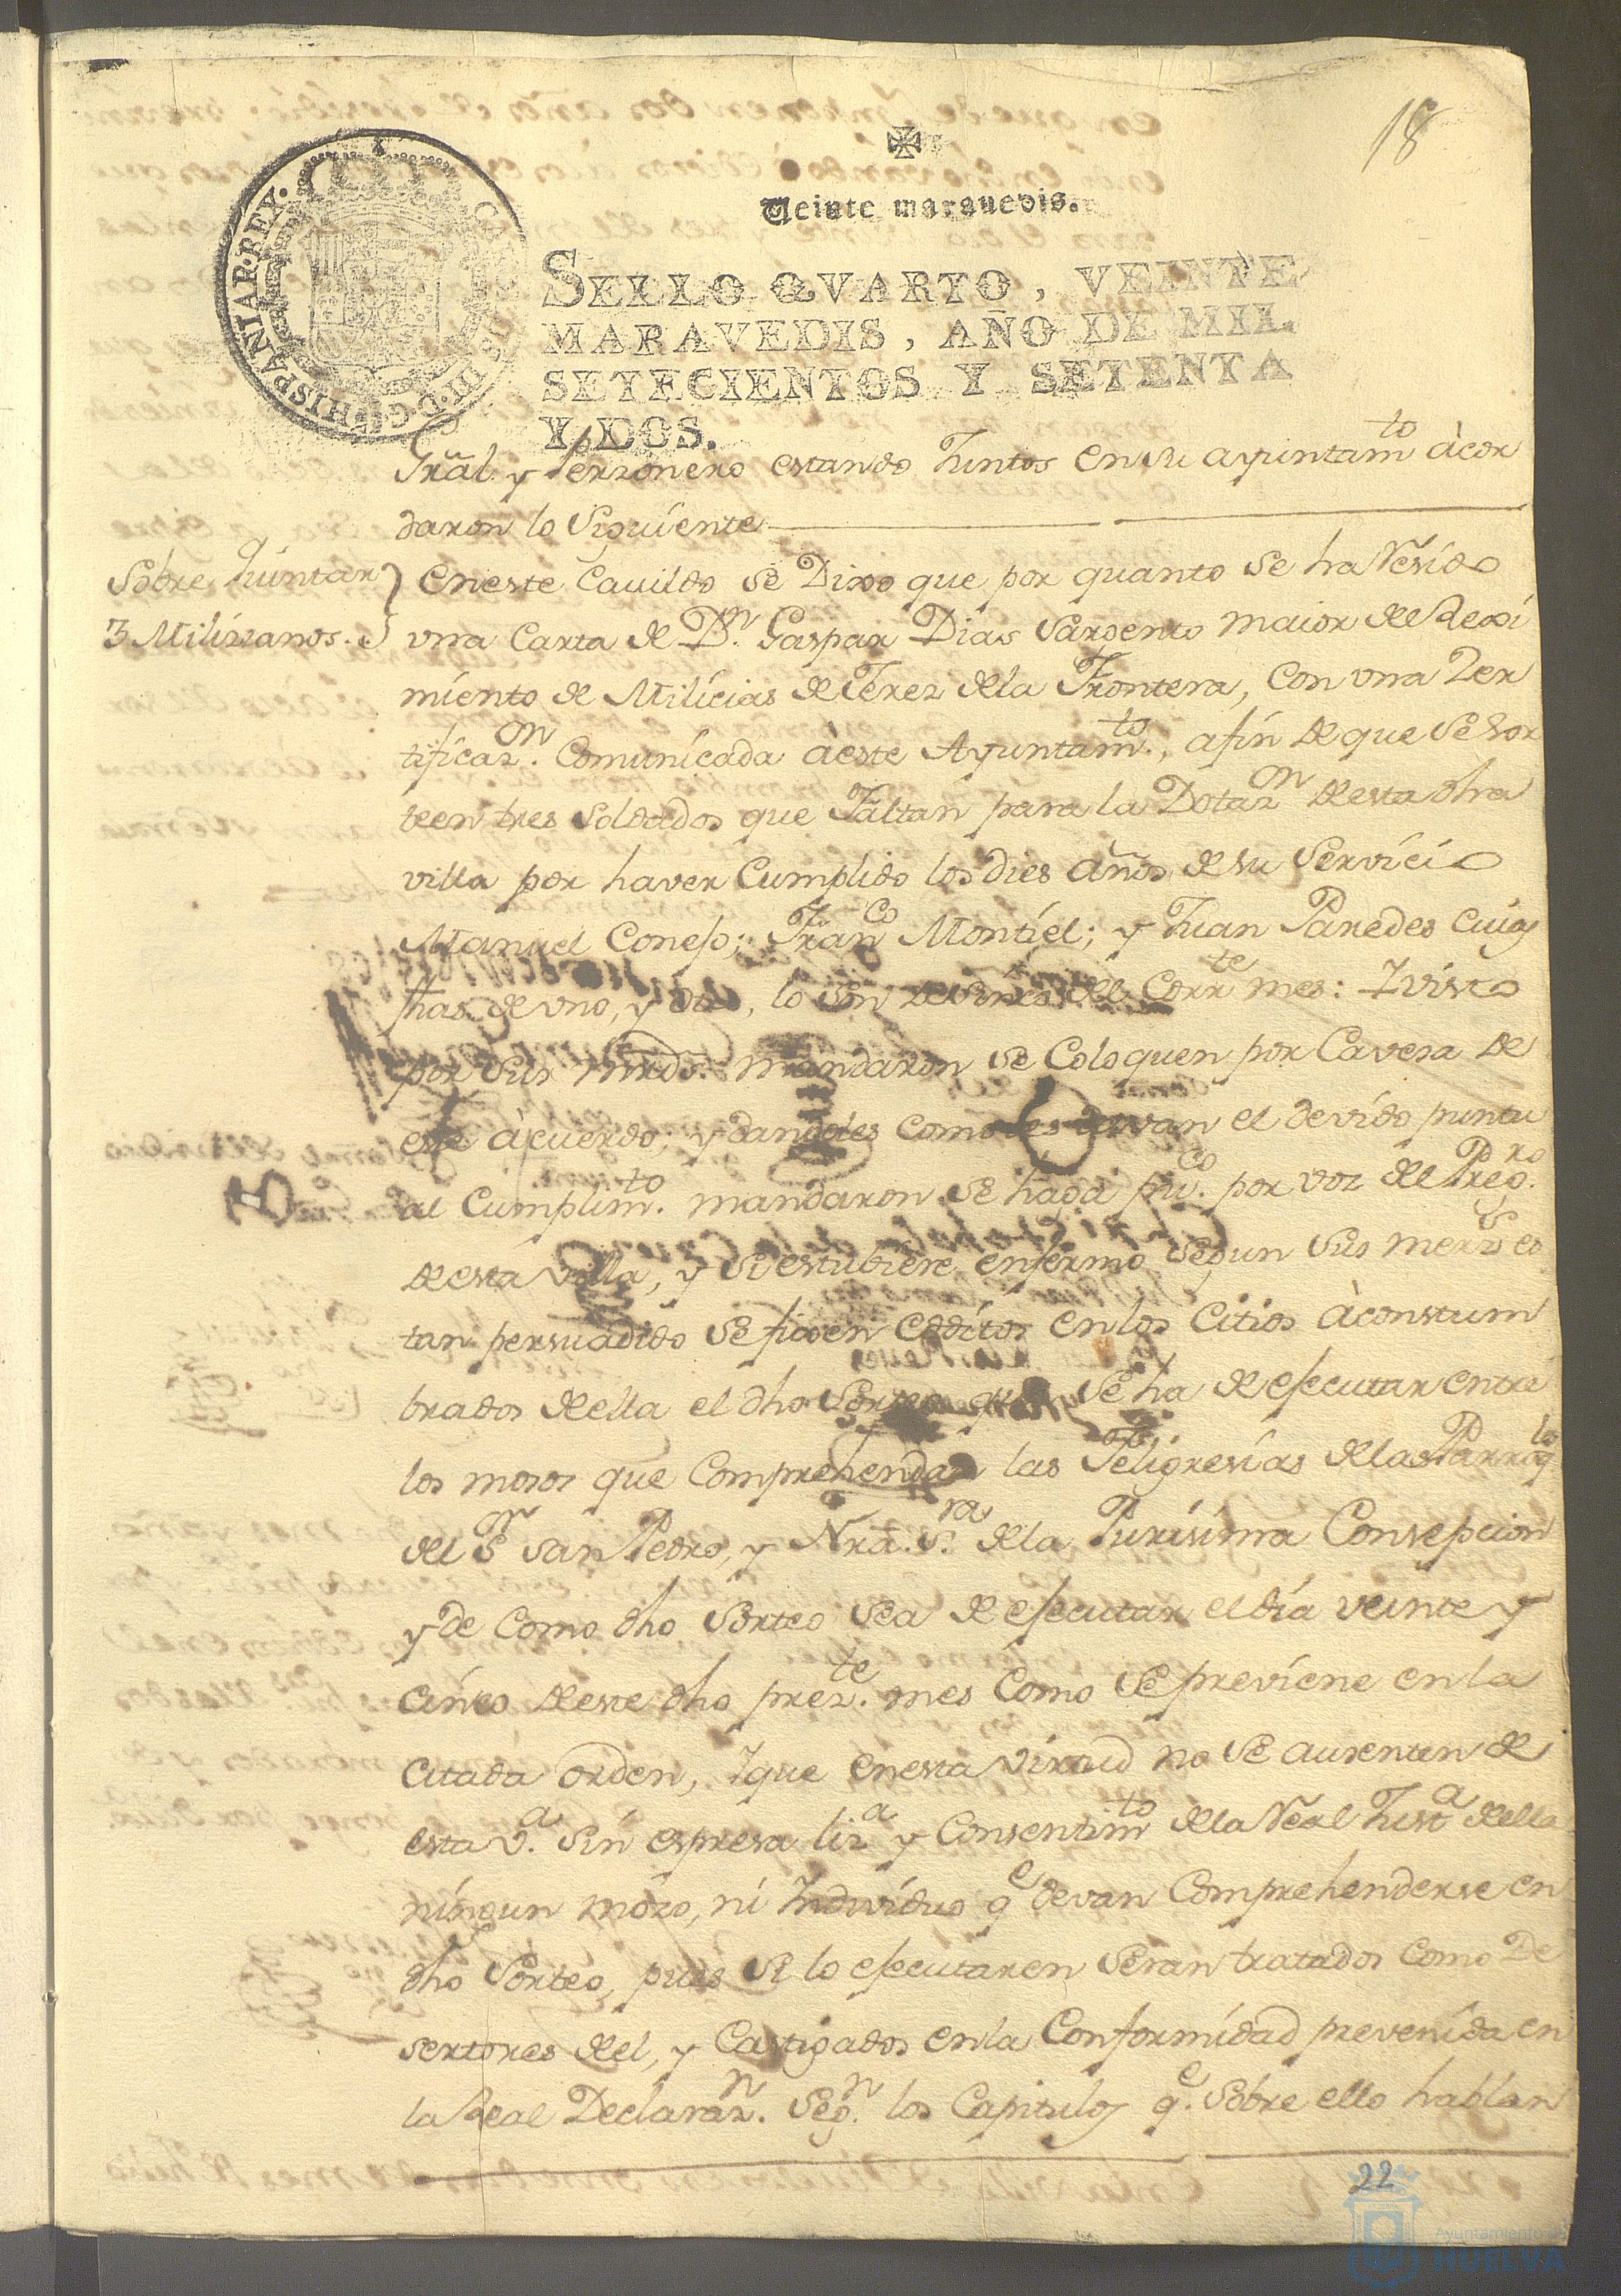 18
Veinte maravedis.
SELLO QVARTO, VEINTE
MARAVEDIS, AÑO DE MIL
SETECIENTOS Y SETENTA
Y DOS.
CAROLUS III. D. G. HISPANIAR. REX.
Grãl. y Perzonero estando Juntos en su ayuntam.to àcor
daron lo Siguiente
Sobre Juntar
3 Milizianos.
en este Cavildo se Dixo que por quanto se ha Resivido
vna Carta de D.n Gaspar Dias Sargento maior del Rexi
miento de Milicias de Jerez dela Frontera, con vna Zer
tificaz.on Comunicada àeste Ayuntam.to, afin de que se Sor
teen tres Soldados que Faltan para la Dotaz.on de esta dha
villa por haver Cumplido los dies años de su Servicio
Manuel Conejo; Fran.co Montiel; y Juan Paredes cuias
fhas de vno, y otro, lo son de Sinco del Corr.te mes: Y visto
por Sus mrds. mandaron se Coloquen por Cavesa de
este àcuerdo; y dandoles como les devan el devido puntu
al Cumplim.to mandaron se haga pu.co por voz del Preg.ro
de esta villa, y Si estubiere enfermo Segun Sus merzedes es
tan persuadido Se fixen Edditos en los Citios àconstum
brados de ella el dho Sorteo que Se ha de efecutar entre
los mosos que Comprehendan las Feligresias de las Parroq.s
del S.r San Pedro, y Nrã. S.ra de la Purisima Consepcion
y de Como dho Sorteo Sea de efecutar el dia veinte y
cinco de este dho prez.te mes Como Se previene en la
citada orden, Y que en esta virtud no Se ausenten de
esta v.a Sin espresa liz.a y Consentim.to de la Real Just.a de ella
ningun mozo, ni Individuo q.e devan Comprehenderse en
dho Sorteo, pues Si lo efecutaren Seran tratados Como De
sertores de el, y Castigados en la Conformidad prevenida en
la Real Declaraz.n Seg.n los Capitulos q.e Sobre ello hablan
22
Ayuntamiento de
HUELVA